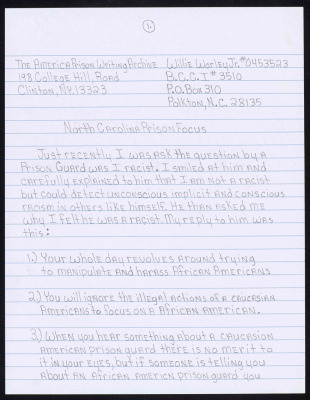 1.
The America Prison Writing Archive Willie Worley Jr. #0453523
198 College Hill, Road B.C.C.I # 3510
Clinton, N.Y. 13323 P.O. Box 310
Polkton, N.C. 28135
North Carolina Prison Focus
Just recently I was ask the question by a
Prison Guard was I racist. I smiled at him and
carefully explained to him that I am not a racist
but could detect unconscious implicit and conscious
racism in others like himself. He than asked me
why I felt he was a racist. My reply to him was
this:
1.) Your whole day revolves around trying
to manipulate and harass African Americans
2.) You will ignore the illegal actions of a caucasian
Americans to focus on a African American.
3.) When you hear something about a caucasion
American prison guard there is no merit to
it in your eyes, but if someone is telling you
about an African Americn prison guard you